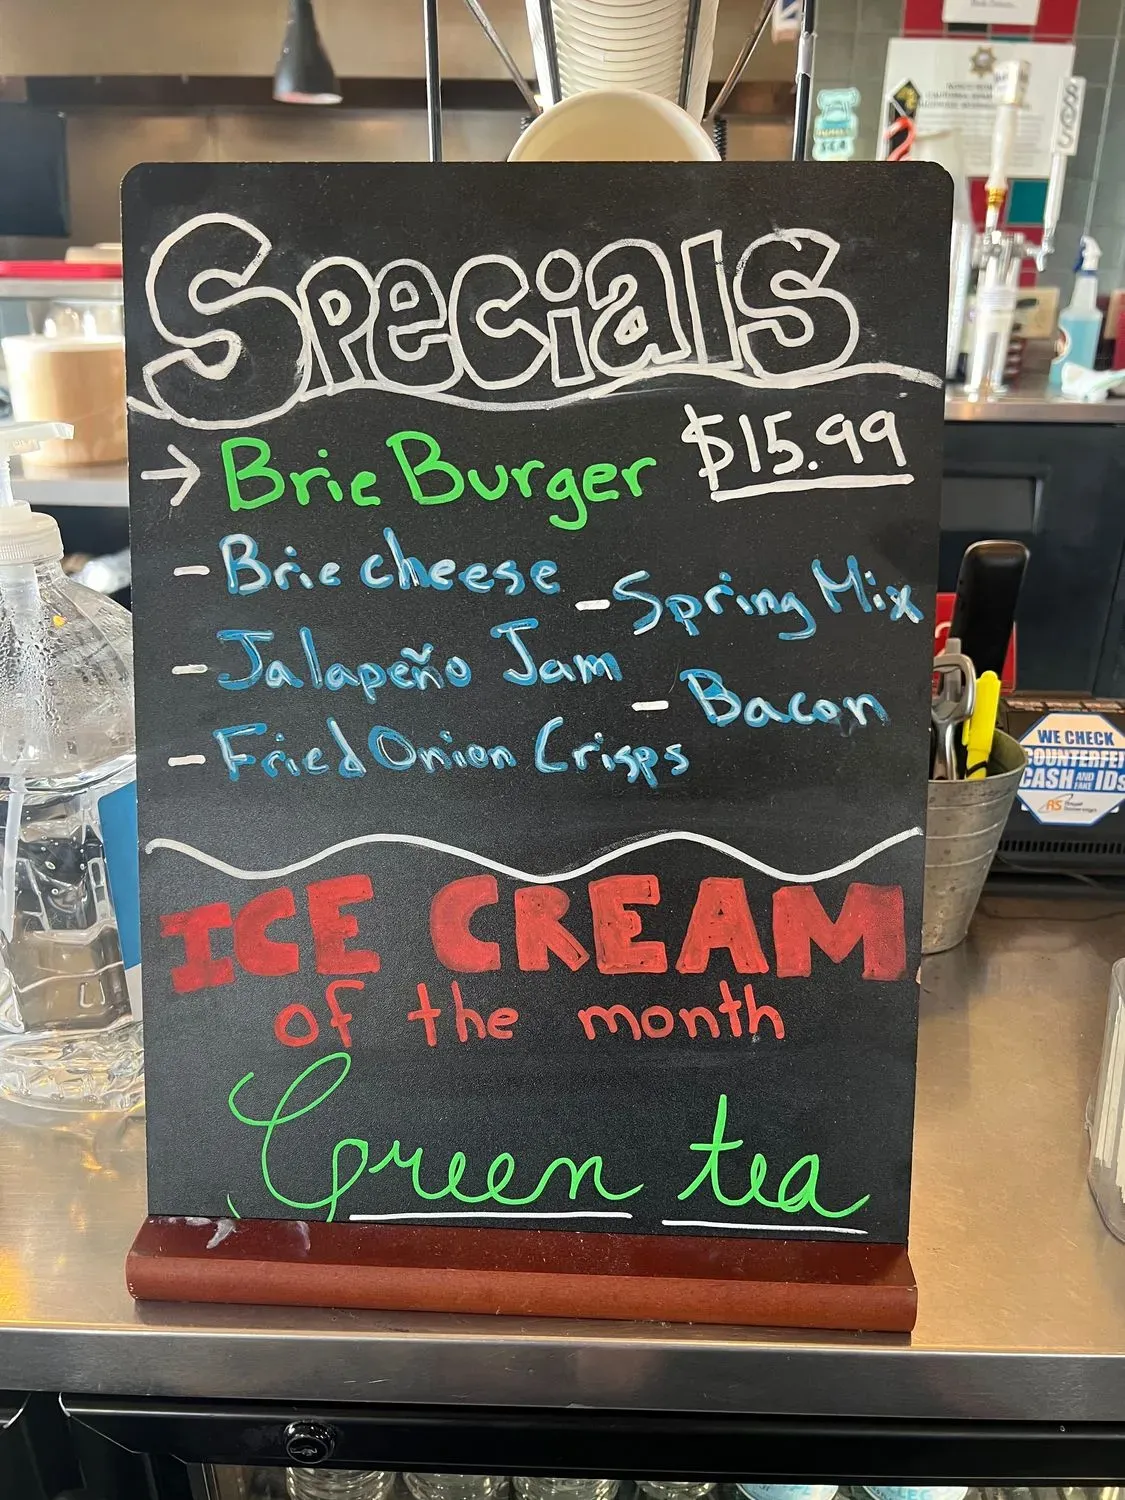 Specials
→ Brie Burger $15.99
- Brie cheese
- Spring Mix
- Jalapeño Jam
- Bacon
- Fried Onion Crisps
ICE CREAM
of the month
Green tea
WE CHECK
COUNTERFEI
CASH AND FAKE IDs